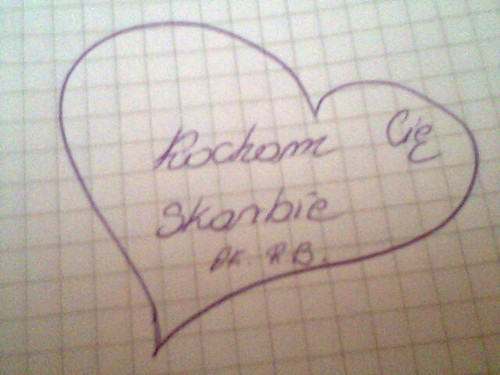 Kocham Cię
Skarbie
PK. R.B.